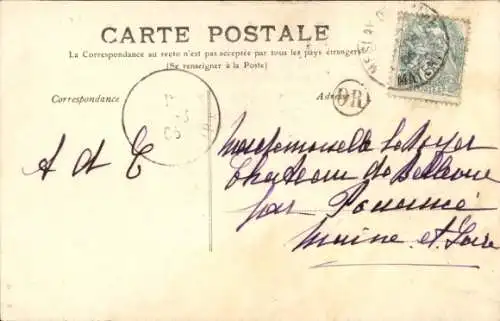 CARTE POSTALE
La Correspondance au recto n'est pas acceptée par tous les pays étrangers
(Se renseigner à la Poste)
Correspondance
OR
A d T
Mademoiselle
Chateau de Bellevue
par Pouancé
Maine et Loire